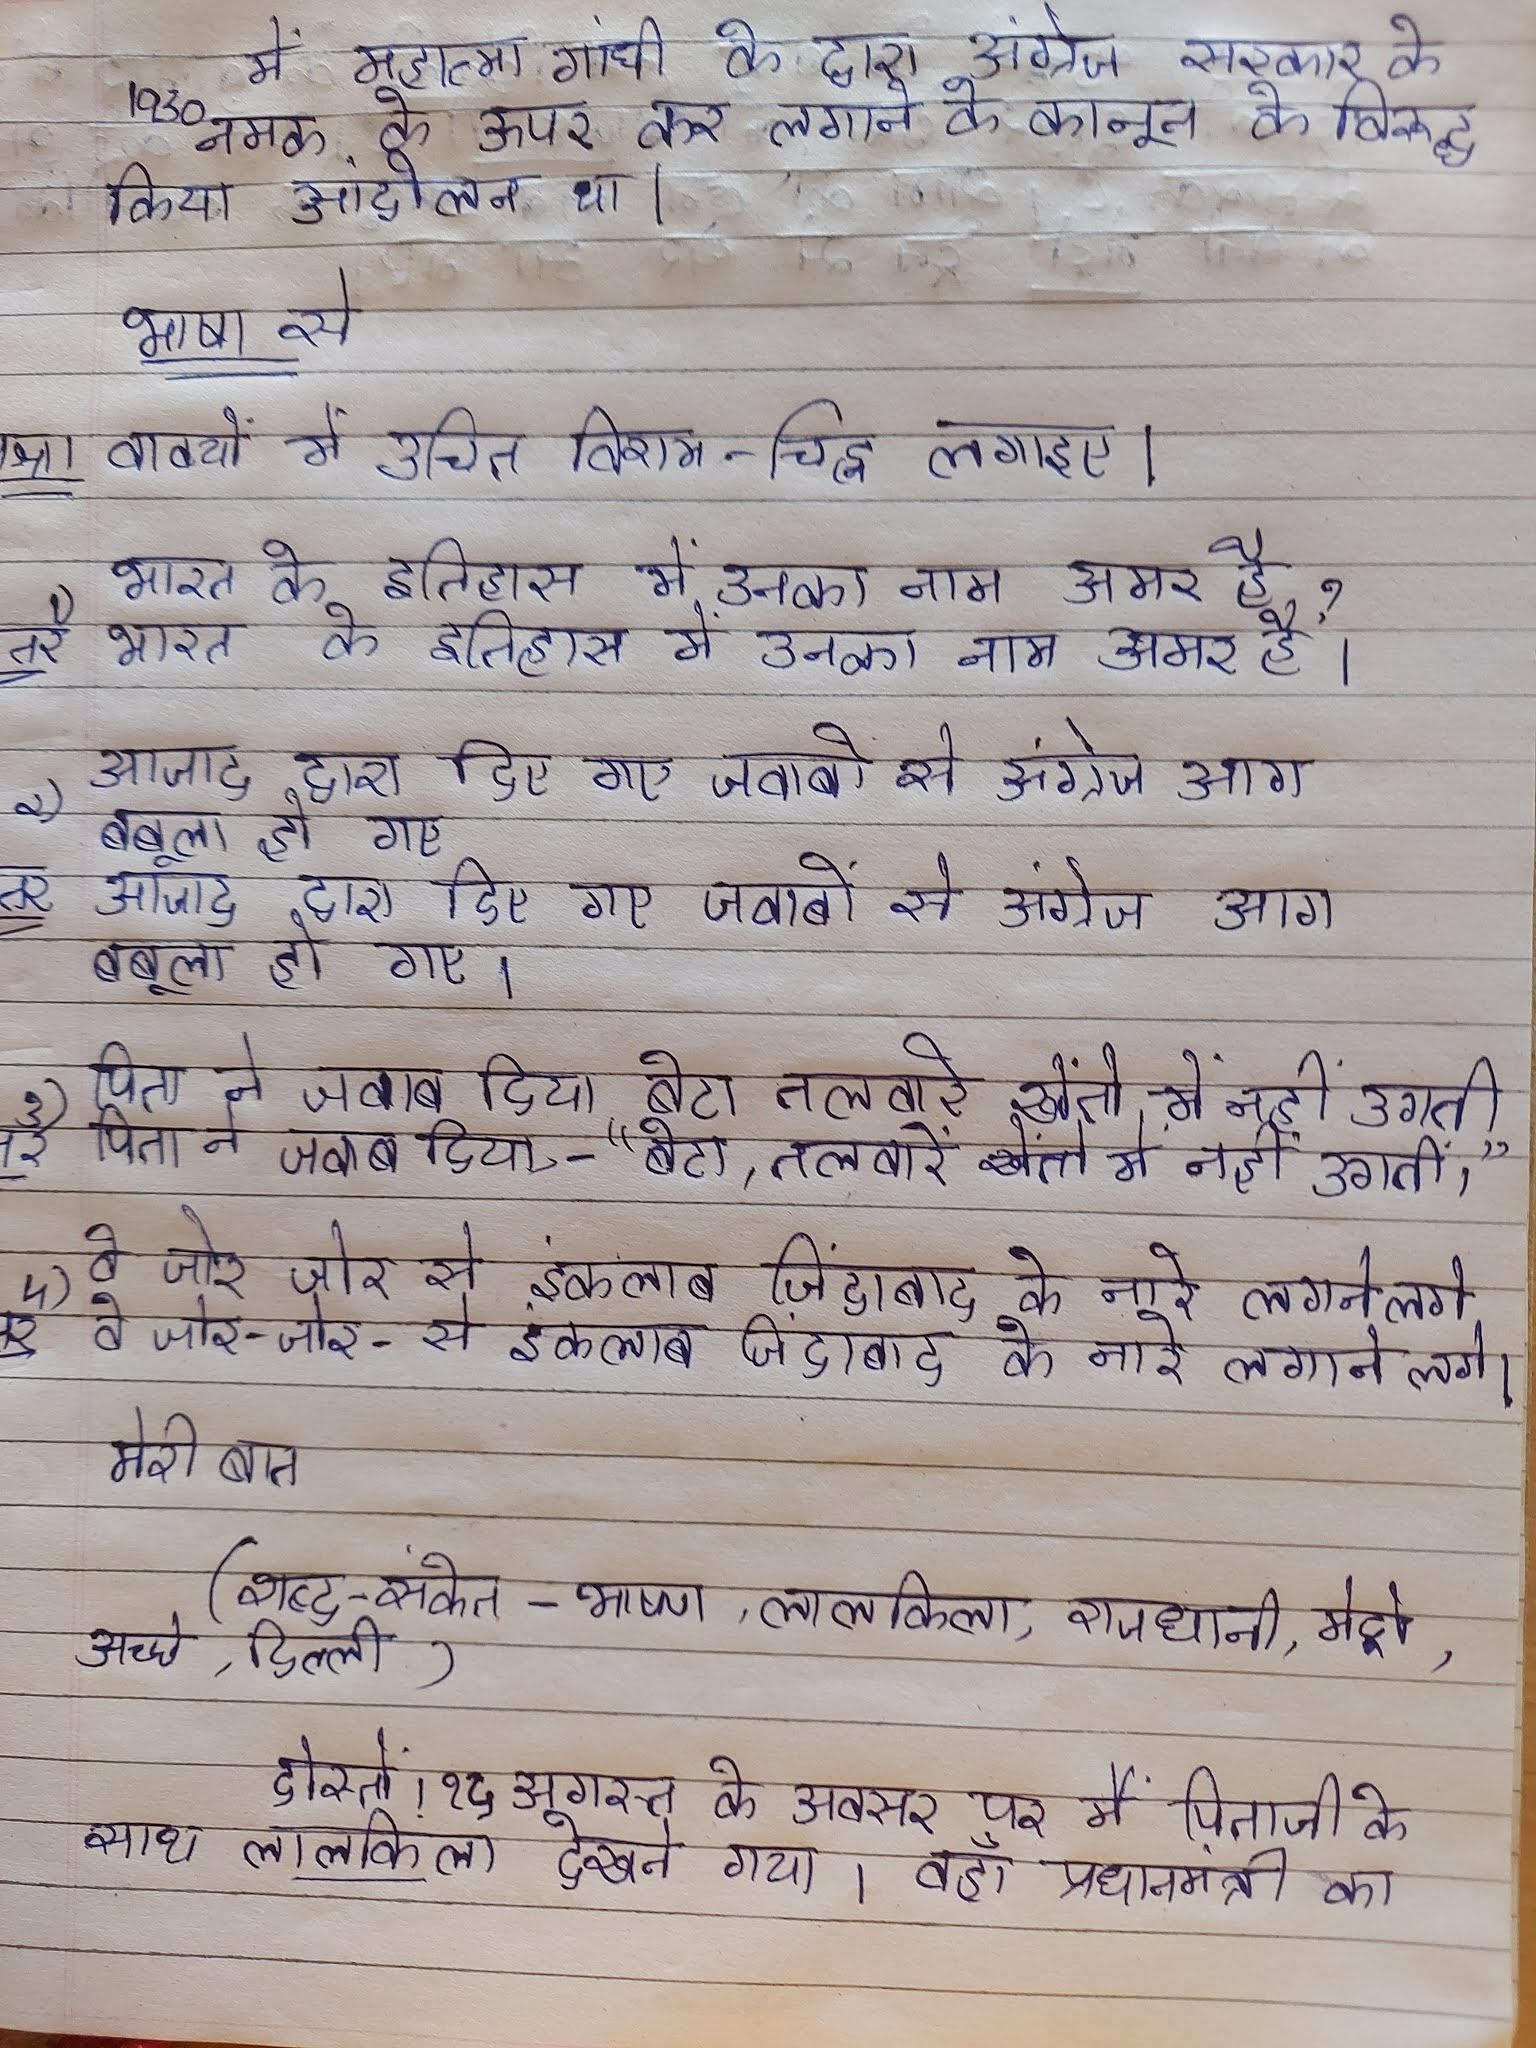 में महात्मा गांधी के द्वारा अंग्रेज सरकार के
1930 नमक के ऊपर कर लगाने के कानून के विरूद्ध
किया आंदोलन था।
भाषा से
वाक्यों में उचित विराम-चिह्न लगाइए।
1) भारत के इतिहास में उनका नाम अमर है ?
तर भारत के इतिहास में उनका नाम अमर है।
2) आजाद द्वारा दिए गए जवाबों से अंग्रेज आग
बबूला हो गए
तर आजाद द्वारा दिए गए जवाबों से अंग्रेज आग
बबूला हो गए।
3) पिता ने जवाब दिया बेटा तलवारे खेंतो में नहीं उगती
तर पिता ने जवाब दिया,-“बेटा, तलवारें खेंतो में नहीं उगतीं,”
4) वे जोर जोर से इंकलाब जिंदाबाद के नारे लगाने लगे
तर वे जोर-जोर-से इंकलाब जिंदाबाद के नारे लगाने लगे।
मेरी बात
(शब्द-संकेत - भाषण, लालकिला, राजधानी, मेट्रो,
अच्छे, दिल्ली)
दोस्तों! १५ अगस्त के अवसर पर मैं पिताजी के
साथ लालकिला देखने गया। वहाँ प्रधानमंत्री का